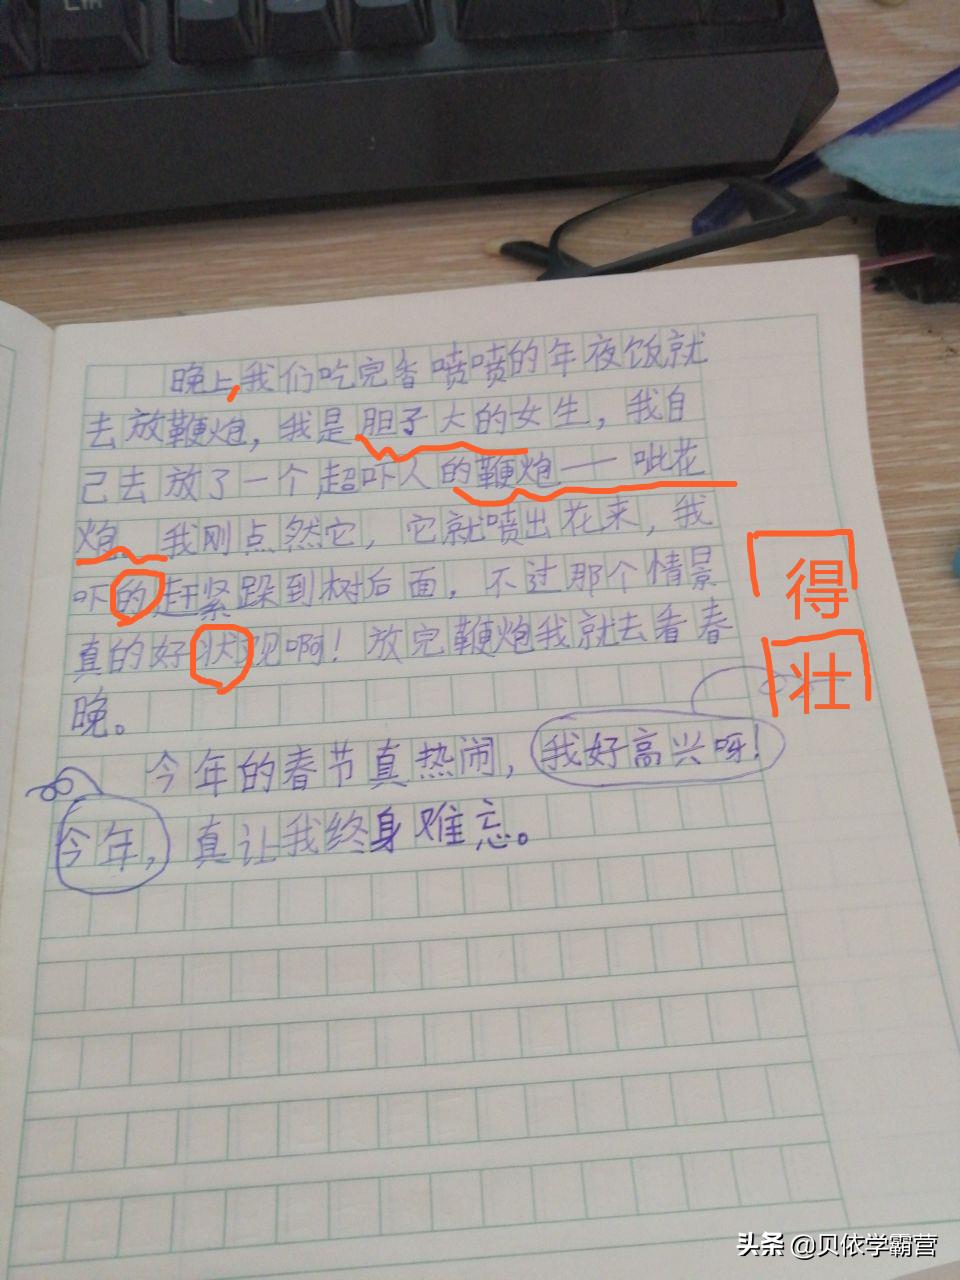 晚上,我们吃完香喷喷的年夜饭就
去放鞭炮，我是胆子大的女生，我自
己去放了一个超吓人的鞭炮——呲花
炮。我刚点然它，它就喷出花来，我
吓的赶紧跺到树后面，不过那个情景
真的好状观啊！放完鞭炮我就去看春
晚。
今年的春节真热闹，我好高兴呀！
今年，真让我终身难忘。
得
壮
头条 @贝依学霸营